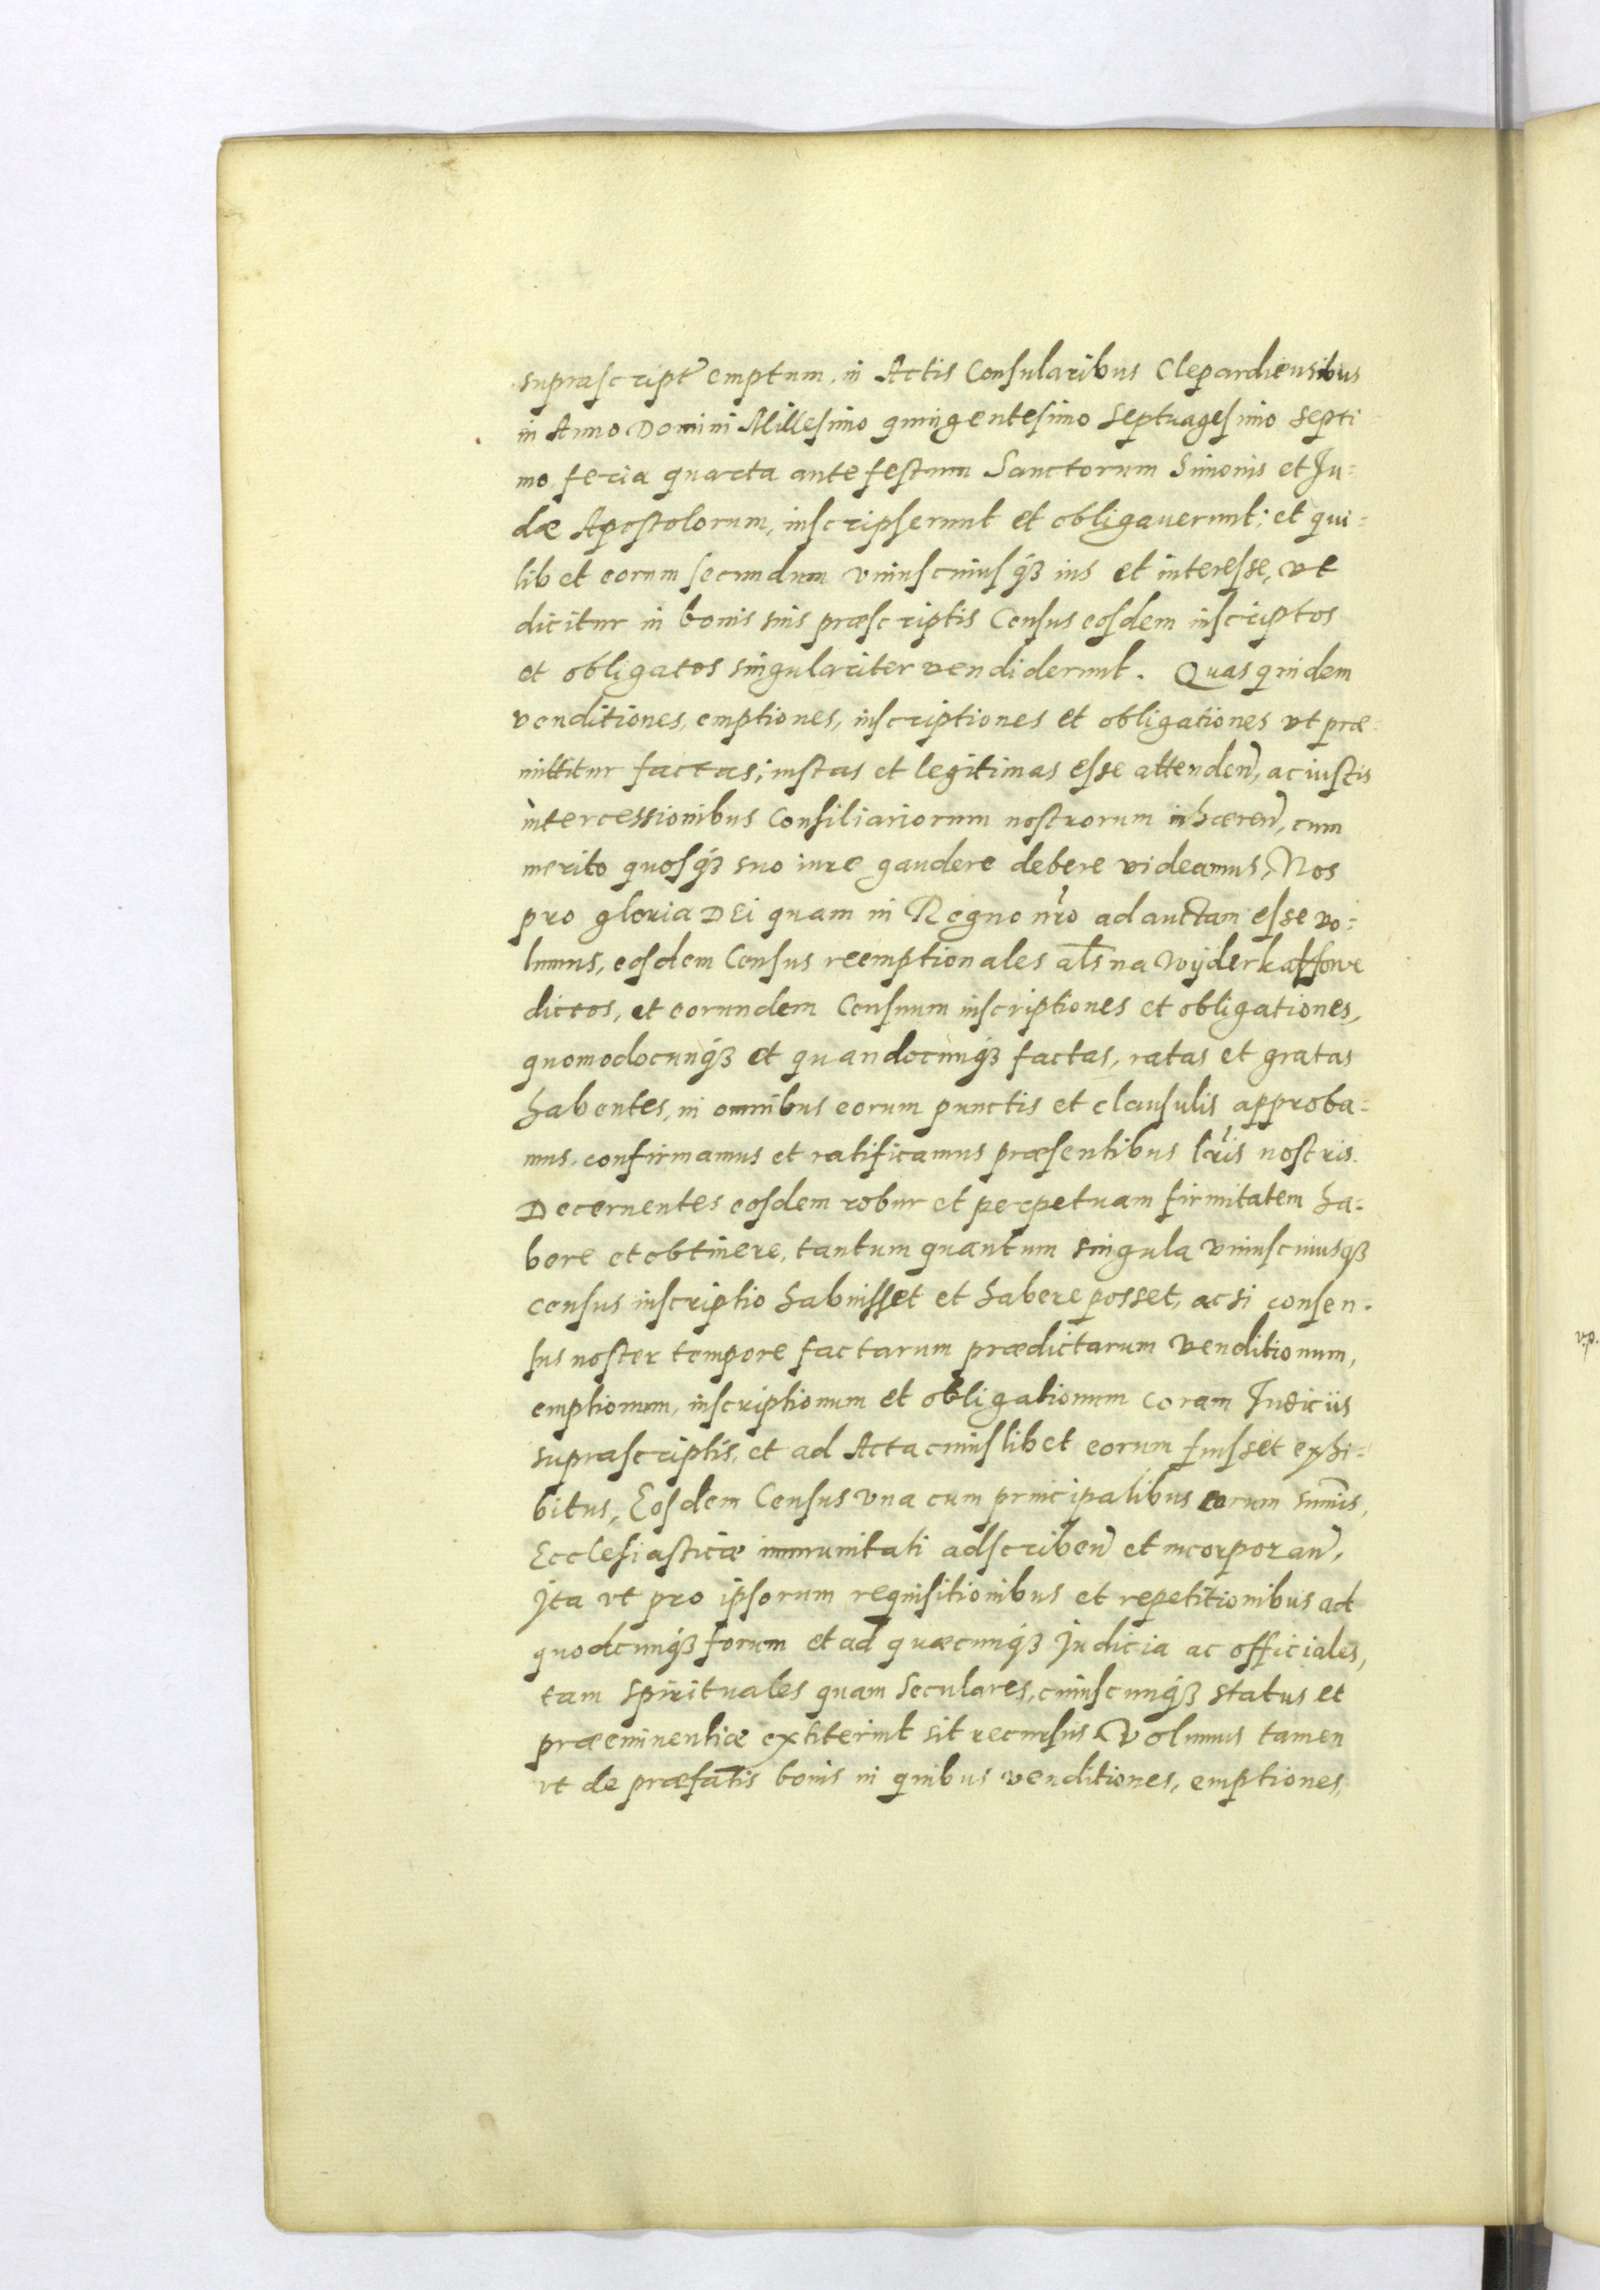 suprascript̃ emptum, in Actis Consularibus Clepardiensibus
in Anno Domini Millesimo quingentesimo Septuagesimo septi
mo feria quarta ante festum Sanctorum Simonis et Ju=
dæ Apostolorum, inscripserunt et obligauerunt; et qui=
libet eorum secundum vniuscuiusq́ꝫ ius et interesse, vt
dicitur in bonis suis præscriptis Census eosdem inscriptos
et obligatos singulariter vendiderunt. Quas quidem
venditiones, emptiones, inscriptiones et obligationes vt præ=
mittitur factas; iustas et legitimas esse attendeñ, ac iustis
intercessionibus Consiliariorum nostrorum inhæreñ, cum
merito quosq́ꝫ suo iure gaudere debere videamus, Nos
pro gloria DEi quam in Regno nr̃o adauctam esse vo=
lumus, eosdem Census reemptionales al̃s na wyderkaffowe
dictos, et eorundem Censuum inscriptiones et obligationes,
quomodocunq́ꝫ et quandocunq́ꝫ factas, ratas et gratas
habentes, in omnibus eorum punctis et clausulis approba=
mus, confirmamus et ratificamus præsentibus lr̃is nostris.
Decernentes eosdem robur et perpetuam firmitatem ha=
bere et obtinere, tantum quantum singula vniuscuiusqꝫ
census inscriptio habuisset et habere posset, ac si consen=
sus noster tempore factarum prædictarum venditionum,
emptionum, inscriptionum et obligationum coram Judiciis
suprascriptis, et ad Acta cuiuslibet eorum fuisset exhi=
bitus, Eosdem Census vna cum principalibus eorum sum̃is,
Ecclesiasticæ immunitati adscribeñ et incorporañ,
Ita vt pro ipsorum requisitionibus et repetitionibus ad
quodcunq́ꝫ forum et ad quæcunq́ꝫ Judicia ac officiales,
tam spirituales quam seculares, cuiuscunq́ꝫ status et
præeminentiæ extiterint sit recursus. Volumus tamen
vt de præfatis bonis in quibus venditiones, emptiones,